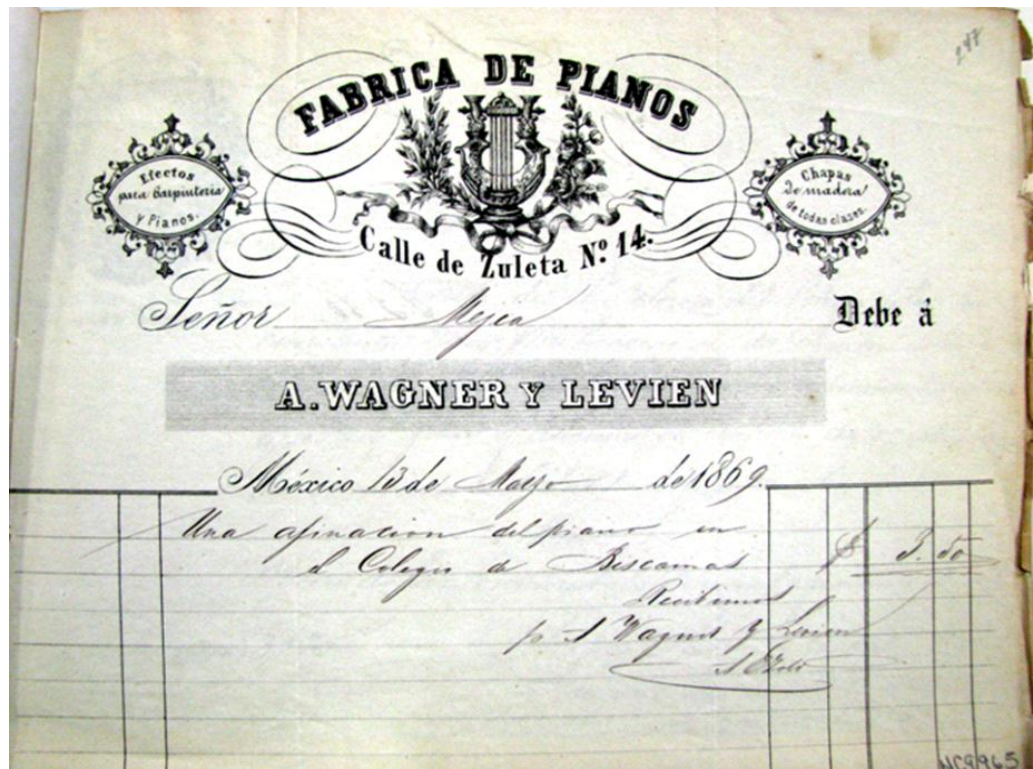 247
FABRICA DE PIANOS
Efectos
para Carpinteria
y Pianos.
Chapas
de madera
de todas clases.
Calle de Zuleta Nº 14.
Señor Mejia Debe á
A. WAGNER Y LEVIEN
México 13 de Marzo de 1869.
Una afinacion del piano en
el Colegio de Biscainas $ 3. 50
Recibimos
p. A Wagner y Levien
NC9965